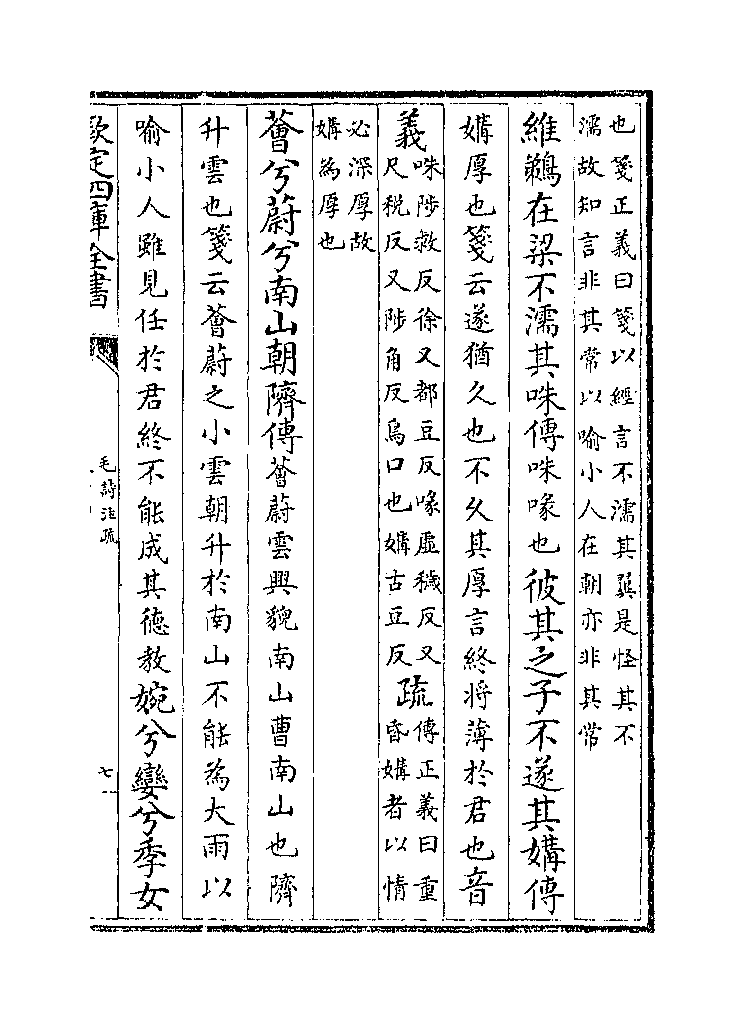 也箋正義曰箋以經言不濡其翼是怪其不
濡故知言非其常以喻小人在朝亦非其常
維鵜在梁不濡其咮傳咮喙也彼其之子不遂其媾傳
媾厚也箋云遂猶久也不久其厚言終將薄於君也音
義
咮陟救反徐又都豆反喙虛穢反又
尺税反又陟角反鳥口也媾古豆反
疏
傳正義曰重
昏媾者以情
必深厚故
媾為厚也
薈兮蔚兮南山朝隮傳薈蔚雲興貌南山曹南山也隮
升雲也箋云薈蔚之小雲朝升於南山不能為大雨以
喻小人雖見任於君終不能成其徳教婉兮孌兮季女
欽定四庫全書
毛詩注疏
七